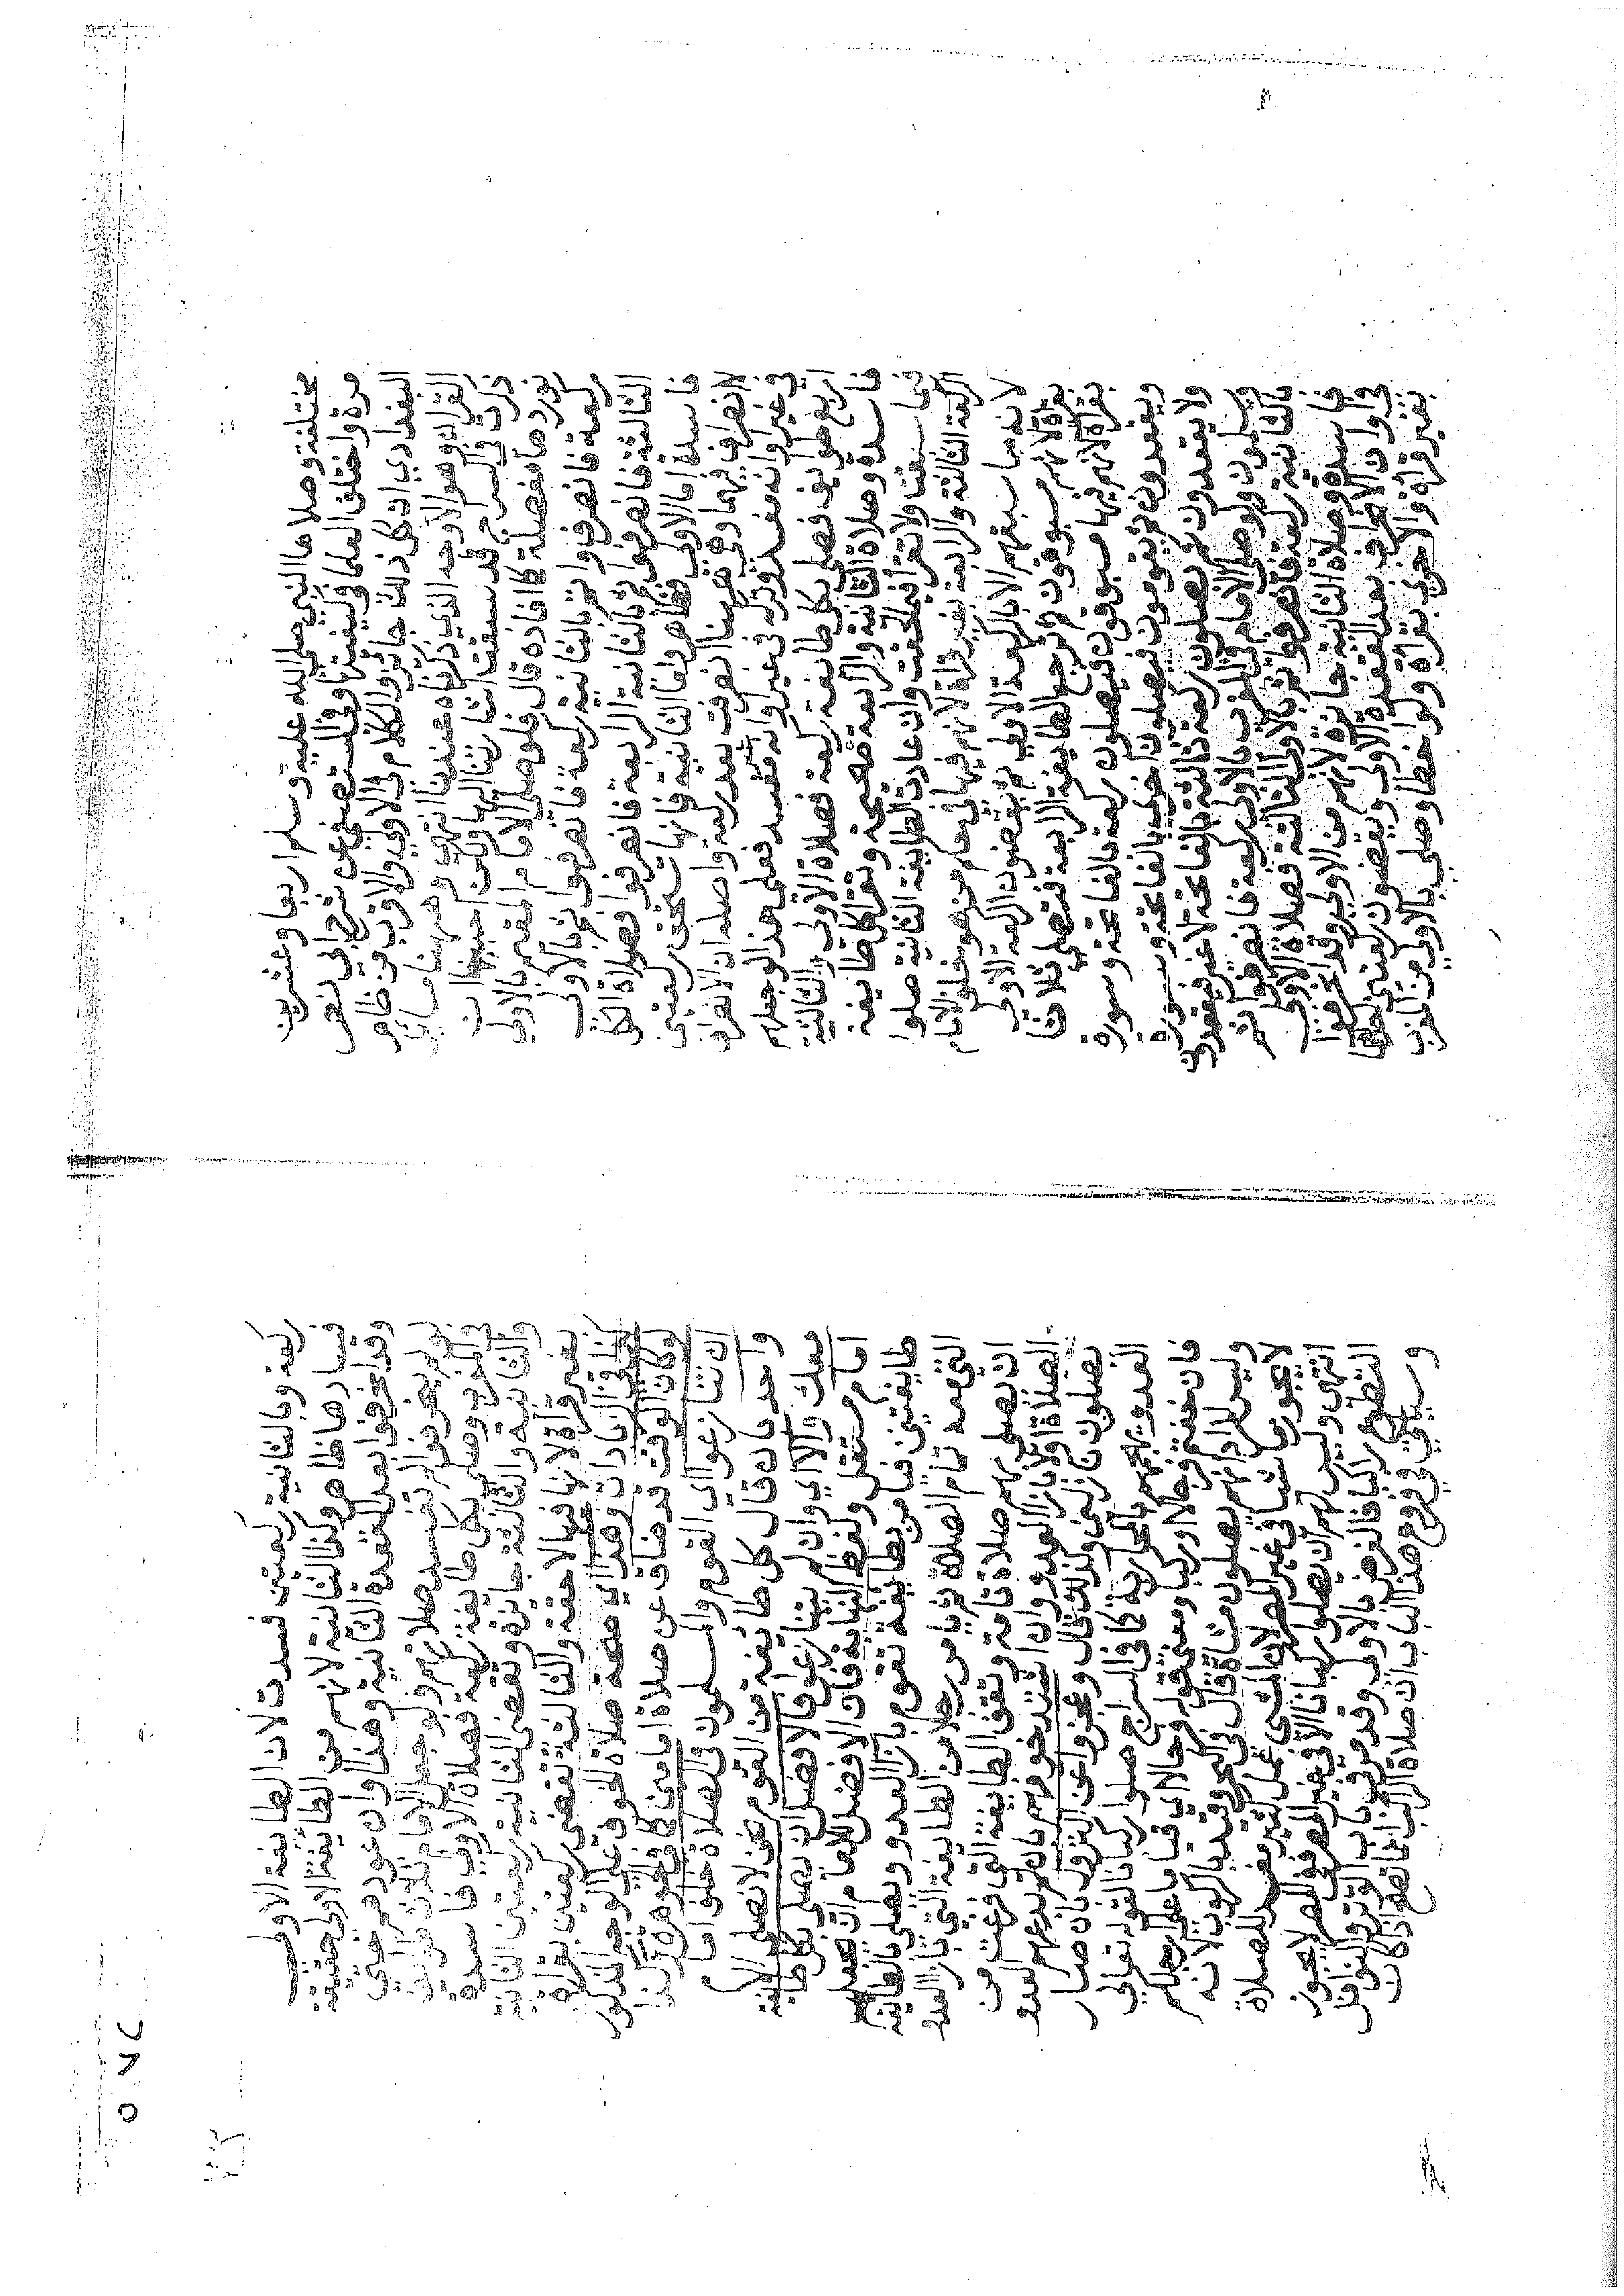 مختلفة وصلاها النبي صلى الله عليه وسلم اربعا وعشرين
مرة واختلف العلما وكيفيتها وفي المستصفي عن شرح ابي نصر
البغدادي ان كل ذلك جائز والكلام في الاولي والاقرب من ظاهر
القران هو الاوجه الذي ذكرناه عندنا انتهى وههنا مسائل
ذكرت في السراج قد سبقت اشارتنا اليها ولكن احببنا ان
نوردها مفصلة كما افاده قال فلو صلى الامام المقيم بالاولى
ركعة فانصرفوا ثم بالثانية ركعة فانصرفوا ثم بالاولى
الثالثة فانصرفوا ثم بالثانية الرابعة فانصرفوا فصلاة الكل
فاسدة اما الاولى فظاهر واما الثانية فانها تستحق ركعتين
لا انصراف فيهما وهي ههنا انصرفت بعد ركعة واصله ان الانحراف
في غير اوانه مفسد وتركه في غير اوانه غير مفسد فعلى هذا لو جعلهم
اربع طوايف فصلى بكل طايفة ركعة فصلاة الاولى والثالثة
فاسدة وصلاة الثانية والرابعة صحيحة وتقرا كل طايفة
فيما سبقت ولا تقرا فيما لحقت وان عادت الطايفة الثانية صلوا
الركعة الثالثة والرابعة بغير قراة لانهم فيها في حكم من هو خلف الامام
لانه ما سبقهم الا بالركعة الاولى ثم يقضون الركعة الاولى
بقراة لانهم مسبوقون ثم ترجع الطايفة الرابعة فتصلي ثلاثا
بقراة لانهم فيها مسبوقون فيصلون ركعة بالفاتحة وسورة
ويقعدون ثم يقومون فيصلون اخرى بالفاتحة وسورة
ولا يقعدون ثم يصلون ركعة ثالثة بالفاتحة لا غير فيقعدون
ويسلمون ولو صلى الامام في المغرب بالاولى ركعة فانصرفوا ثم
بالثانية ركعة فانصرفوا ثم بالاولى الثالثة فصلاة الاولى
فاسدة وصلاة الثانية جائزة لانهم من الاولى وقد انحرفوا
في اوان الانحراف بعد القعدة الاولى ويقضون ركعتين احدهما
بغير قراة والاخرى بقراة ولو اخطا وصلى بالاولى من المغرب
ركعة وبالثانية ركعتين فسدت لان الطايفة الاولى
فسادها ظاهر وكذا الثانية لانهم من الطايفة الاولى حقيقة
وقد انحرفوا بعد القعدة الثانية وهذا اوان عودهم حتى
لو لم ينحرفوا لم تفسد صلاتهم ولو جعل الامام ثلاث طوايف
في المغرب وصلى بكل طايفة ركعة فصلاة الاولى فاسدة
والثانية والثالثة جايزة وتقضى الثانية ركعتين الثانية
بغير قراة لانها فيها لاحقة والثالثة تقضي ركعتين بقراة
وكان الوقت قد ضاق عن صلاة امامين
ان تنازعوا اي القوم والمسلمون في الصلاة خلف امام
واحد بان قال كل طائفة من القوم نحن لا نصلي الا
معك والا اي وان لم يتنازعوا فالافضل ان يصلي بكل طايفة
امام مستقل ولفظ النهاية فان الافضل للامام ان يجعلهم
طايفتين فيامر بطايفة تقوم بازا العدو ويصلي بالطايفة
التي معه تمام الصلاة ثم يامر رجلا من الطايفة التي بازا العدو
ان يصلي بهم صلاة تامة وتقف الطايفة التي فرغت من
الصلاة اولا بازا العدو وان اشتد خوفهم بان لم يدعهم العدو
يصلون نازلين ولذلك قال وعجزوا عن النزول بان صار
العدو يهجمهم بالمحاربة كما في السراج صلوا ركبانا لقوله تعالى
فان خفتم فرجالا او ركبانا ومعنى قوله رجالا اي قياما على ارجلهم
وليس المراد انهم يصلون مشاة قال في البحر وقيد بالركوب لانه
لا يجوز ماشيا في غير المصر لان المشي عمل كثير مفسد للصلاة
انتهى وليس لهم ان يصلوا ركبانا الا في غير المصر ففي المصر لا يجوز
التطوع راكبا فالفرض بالاولى وقد مر في باب الوتر والنوافل
وسيجي في فرع هذا الباب ان صلاة الراكب انما تصح اذا كان